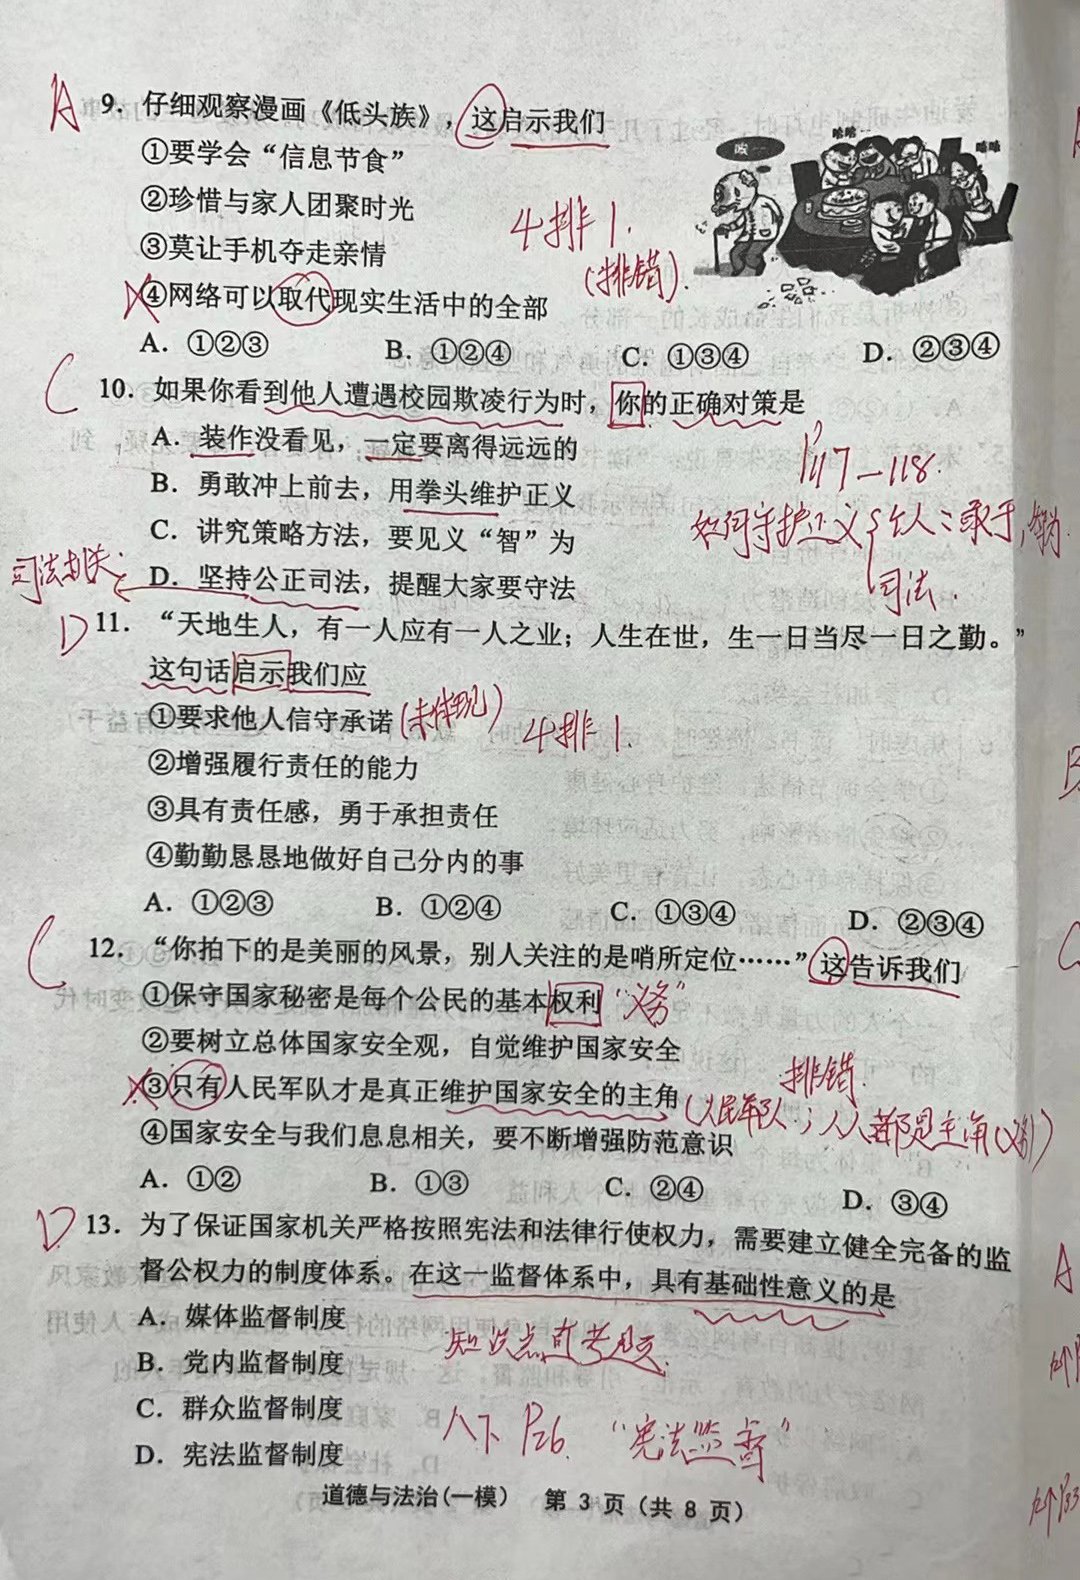 A 9. 仔细观察漫画《低头族》，这启示我们
①要学会“信息节食”
②珍惜与家人团聚时光
③莫让手机夺走亲情
④网络可以取代现实生活中的全部
4排1.
(排错).
唉……
咕咕
咕咕
A. ①②③ B. ①②④ C. ①③④ D. ②③④
C 10. 如果你看到他人遭遇校园欺凌行为时，你的正确对策是
A. 装作没看见，一定要离得远远的
B. 勇敢冲上前去，用拳头维护正义
C. 讲究策略方法，要见义“智”为
D. 坚持公正司法，提醒大家要守法
P117—118.
如何守护正义 个人：敢于,智为.
司法.
司法机关.
D 11. “天地生人，有一人应有一人之业；人生在世，生一日当尽一日之勤。”
这句话启示我们应
①要求他人信守承诺 (未体现)
②增强履行责任的能力
③具有责任感，勇于承担责任
④勤勤恳恳地做好自己分内的事
4排1.
A. ①②③ B. ①②④ C. ①③④ D. ②③④
C 12. “你拍下的是美丽的风景，别人关注的是哨所定位……”这告诉我们
①保守国家秘密是每个公民的基本权利 “义务”
②要树立总体国家安全观，自觉维护国家安全
排错.
③只有人民军队才是真正维护国家安全的主角 (人民军队；人人都是主角(义务))
④国家安全与我们息息相关，要不断增强防范意识
A. ①② B. ①③ C. ②④ D. ③④
D 13. 为了保证国家机关严格按照宪法和法律行使权力，需要建立健全完备的监
督公权力的制度体系。在这一监督体系中，具有基础性意义的是
A. 媒体监督制度
B. 党内监督制度
C. 群众监督制度
D. 宪法监督制度
知识点直考题.
八下 P26. “宪法监督”
道德与法治(一模) 第 3 页 (共 8 页)